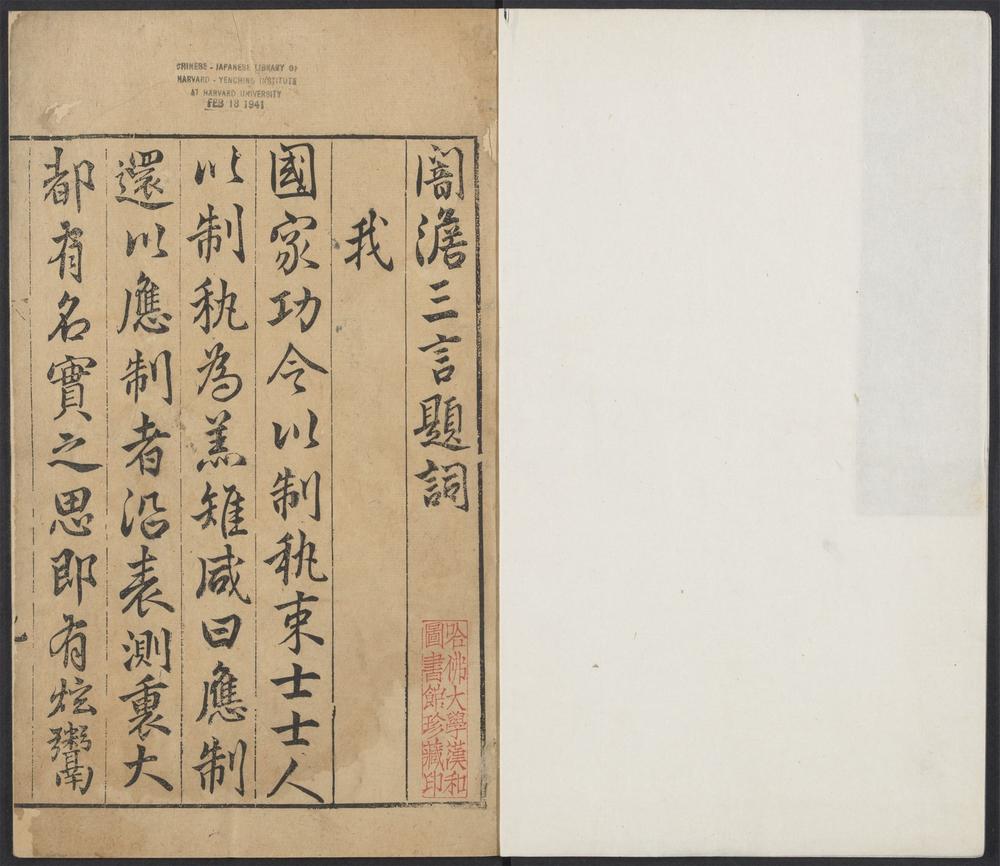 CHINESE - JAPANESE LIBRARY OF
HARVARD - YENCHING INSTITUTE
AT HARVARD UNIVERSITY
FEB 18 1941
闇澹三言題詞
我
國家功令以制秇束士士人
以制秇為羔雉咸曰應制
還以應制者沿表測裏大
都有名實之思即有炫鬻
哈佛大學漢和
圖書館珍藏印